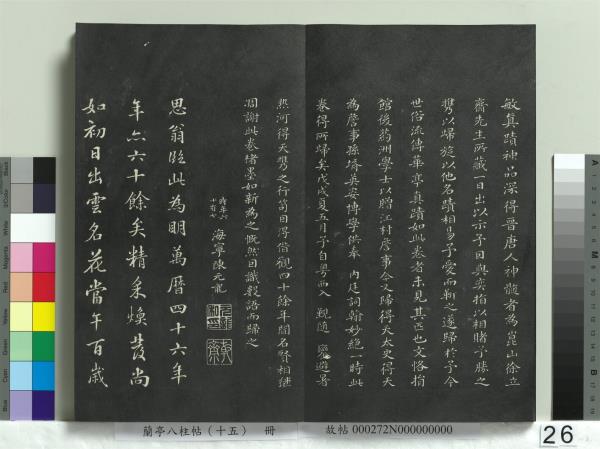 敏真蹟神品深得晉唐人神髓者為崑山徐立
齋先生所藏一日出以示予因與奕指以相賭予勝之
攜以歸旋以他名蹟相易予愛而靳之遂歸於予今
世俗流傳華亭真蹟如此卷者未見其匹也文恪捐
館後蒭洲學士以贈江村詹事今又歸得天太史得天
為詹事孫壻真安博學供奉 內廷詞翰妙絕一時此
卷得所歸矣戊戌夏五月予自粵西入 覲隨 避暑
熱河得天雋之行笥因得借觀四十餘年間名賢相繼
凋謝此卷楮墨如新為之慨然因識數語而歸之
時年六十有七
海寧陳元龍
思翁臨此為明萬曆四十六年
年六十餘矣精采煥發尚
如初日出雲名花當午百歲
蘭亭八柱帖（十五） 冊
故帖 000272N000000000
26